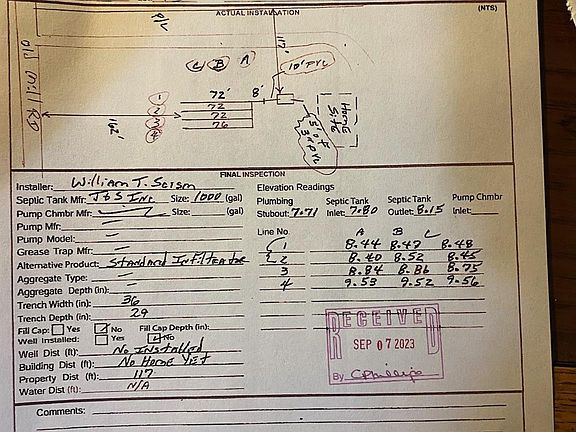 ACTUAL INSTALLATION
(NTS)
P/L
117'
C B A
10' PVC
Old Mill RD
72' 8'
72
72
76
1
2
3
4
162'
Home
Site
FINAL INSPECTION
Installer: William T. Scism
Elevation Readings
Septic Tank Mfr: J&S Inc Size: 1000 (gal)
Plumbing Septic Tank Septic Tank Pump Chmbr
Pump Chmbr Mfr: Size: (gal)
Stubout: 7.71 Inlet: 7.80 Outlet: 8.15 Inlet:
Pump Mfr:
Pump Model:
Line No. A B C
Grease Trap Mfr:
1 8.44 8.47 8.48
Alternative Product: Standard Infiltrator
2 8.40 8.52 8.45
Aggregate Type:
3 8.84 8.86 8.75
Aggregate Depth (in):
4 9.53 9.52 9.56
Trench Width (in): 36
Trench Depth (in): 29
Fill Cap: Yes No Fill Cap Depth (in):
Well Installed: Yes No
Well Dist (ft): No Installed
Building Dist (ft): No Home Yet
Property Dist (ft): 117
Water Dist (ft): N/A
RECEIVED
SEP 07 2023
By CPhillips
Comments: